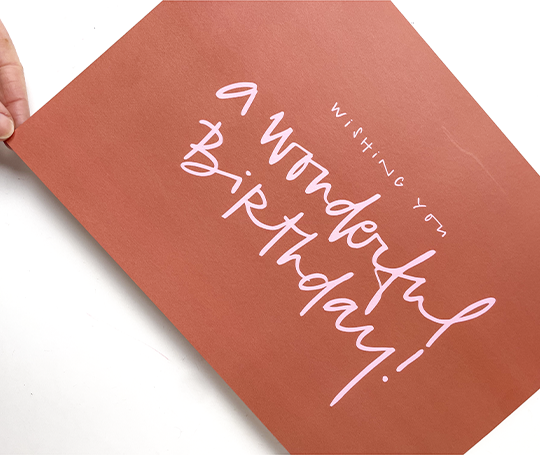 WiSHiNG YOU
a wonderful
BiRthday!